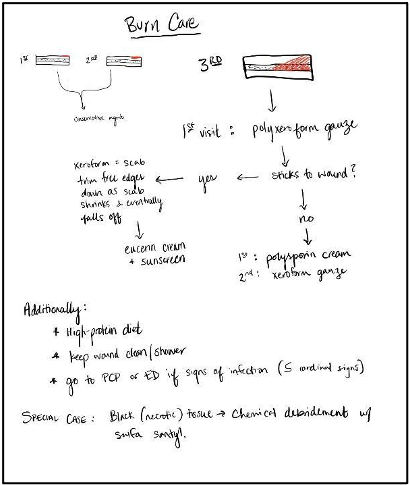 Burn Care
1st 2nd 3RD
conservative mgmt
1st visit : polyxeroform gauze
sticks to wound?
yes
xeroform = scab
trim free edges
down as scab
shrinks & eventually
falls off
eucerin cream
+ sunscreen
no
1st : polysporin cream
2nd : xeroform gauze
Additionally:
* High-protein diet
* Keep wound clean/shower
* go to PCP or ED if signs of infection (5 cardinal signs)
SPECIAL CASE : Black (necrotic) tissue → Chemical debridement w/
sulfa santyl.